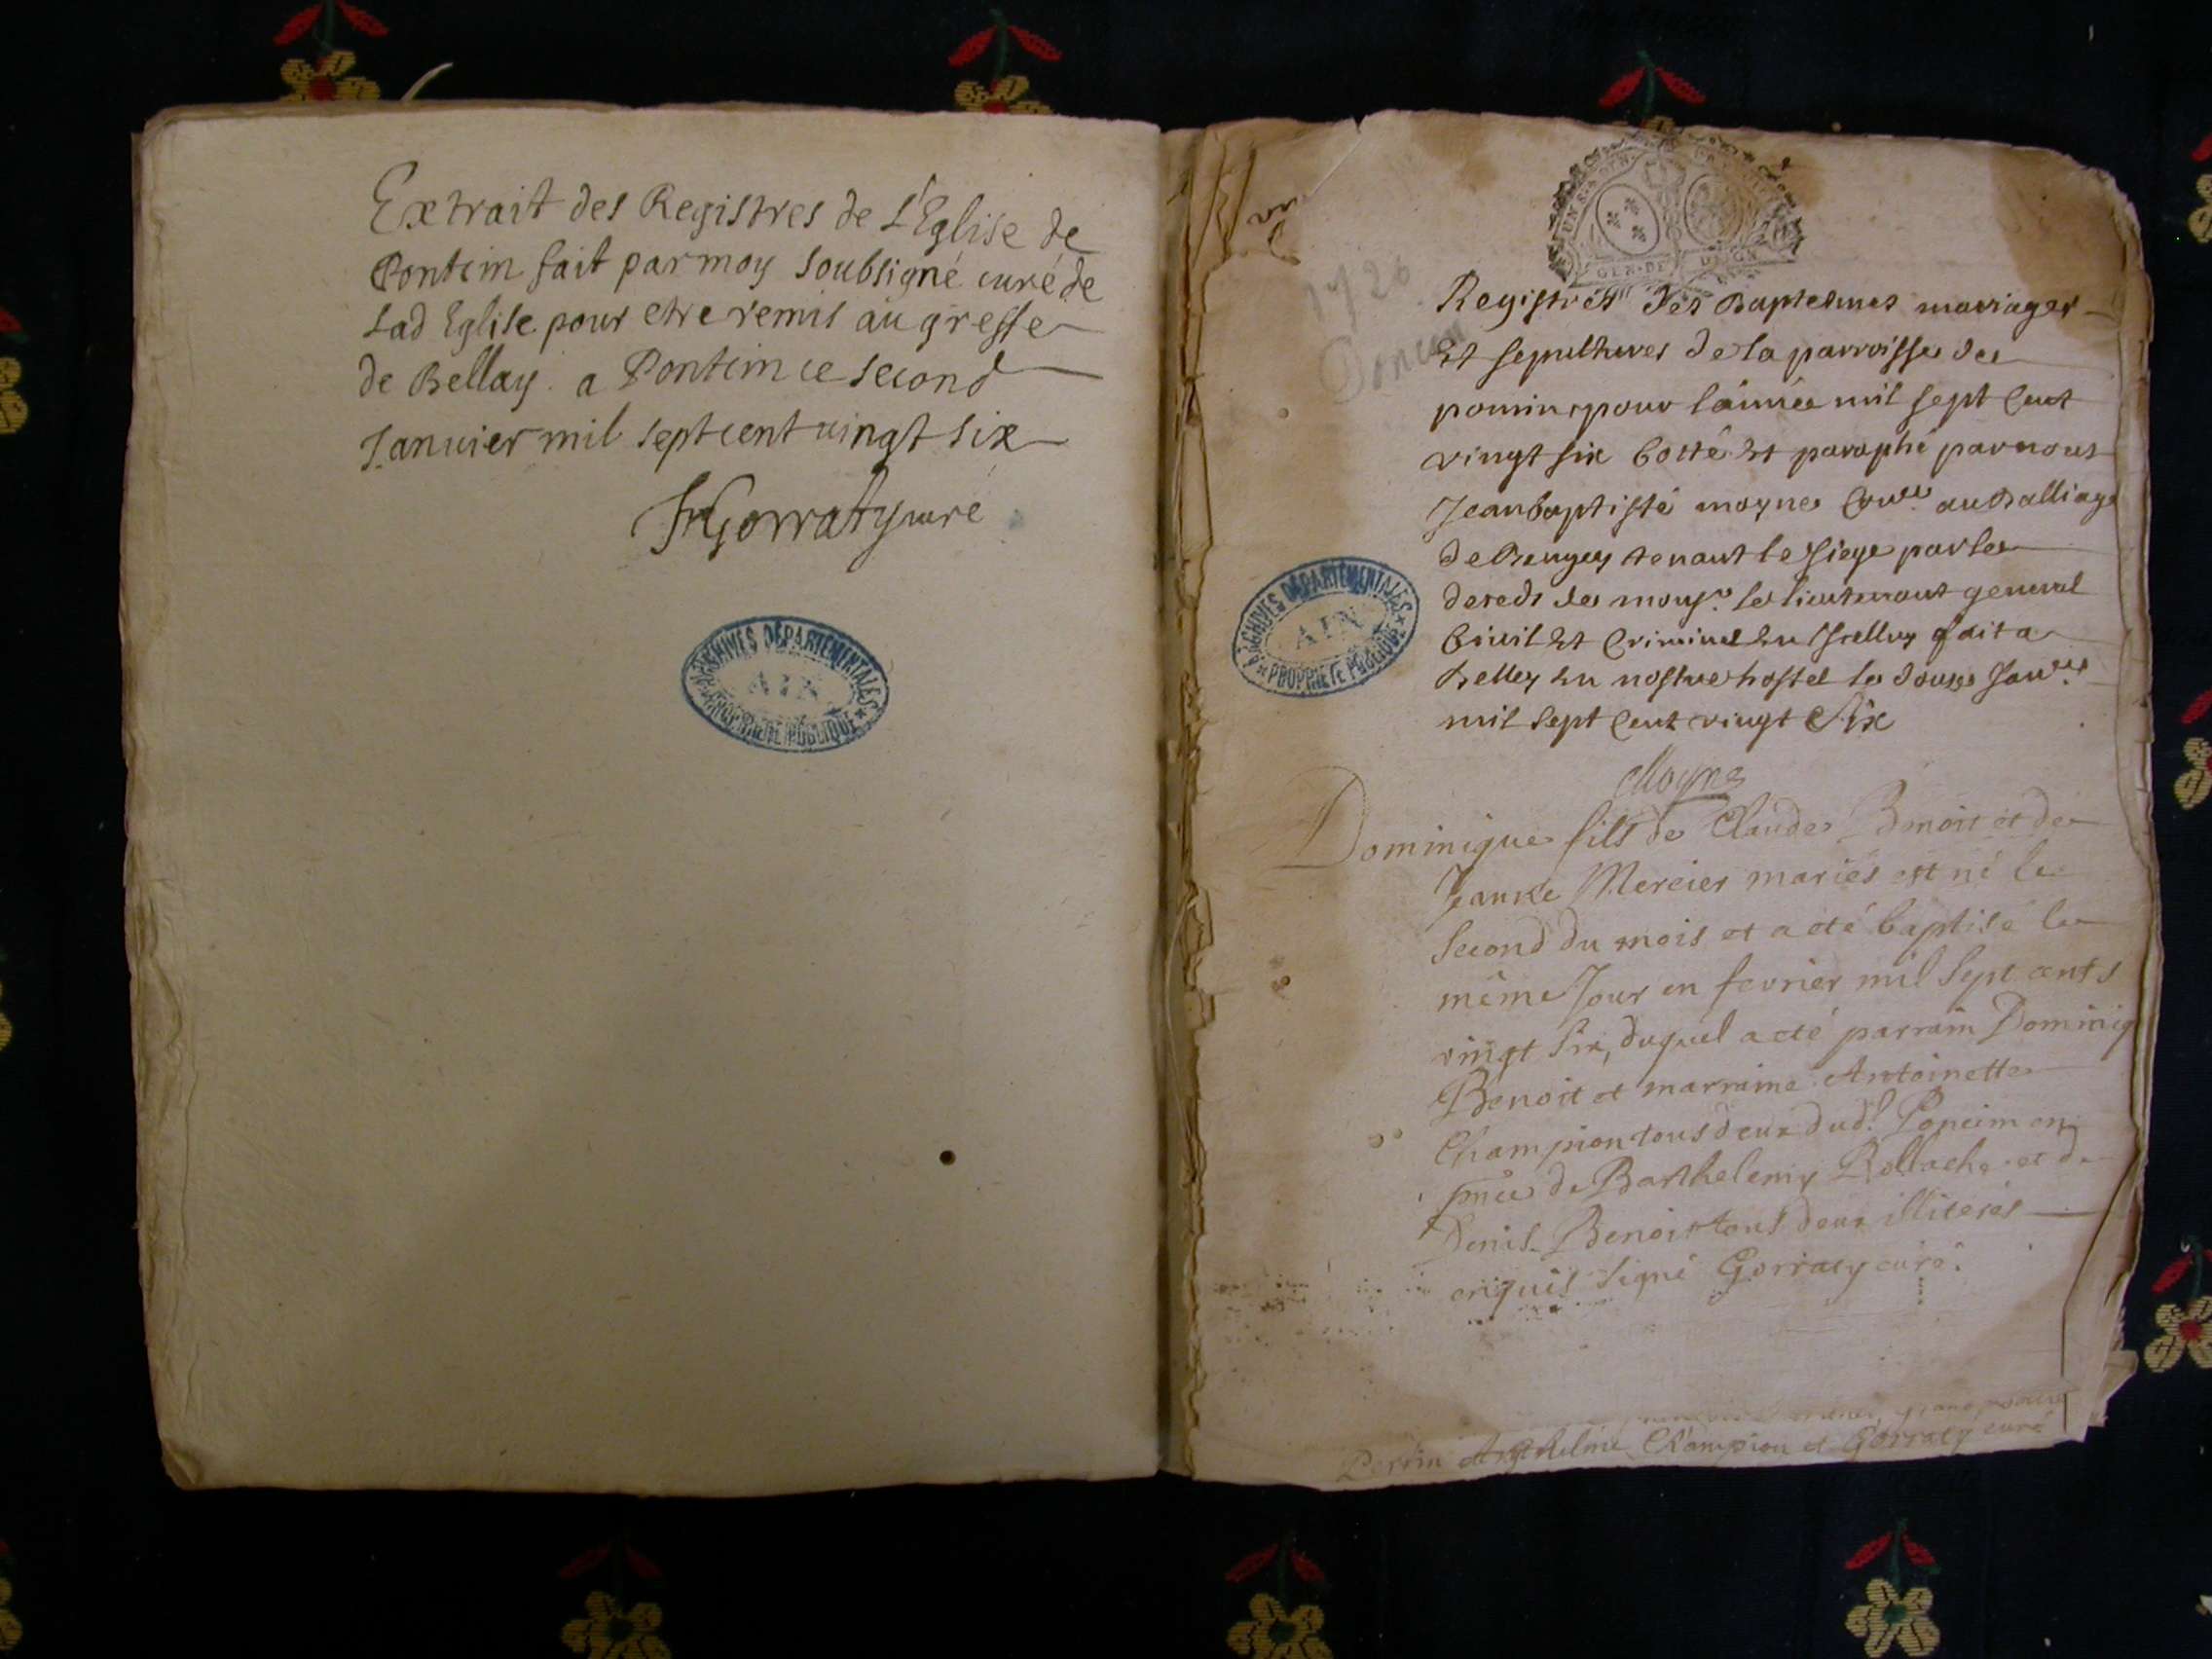 Extrait des Registres de L'Eglise de
Pontcin fait par moy soubsigné curé de
Lad Eglise pour etre remis au greffe
de Bellay. a Pontcin ce second
Janvier mil sept cent vingt six
Gorraty curé
ARCHIVES DÉPARTEMENTALES
AIN
PROPRIÉTÉ PUBLIQUE
1726
GEN·DE DIJON
Registres des Baptesmes mariages
Et sepultures de la parroisse de
poncin pour lánnée mil sept Cent
vingt six Cotté Et paraphé par nous
Jean baptiste moyne Con.er au Balliage
de Beugey tenant le siege par le
deceds de mons.r le lieutenant general
Civil Et Criminel fait a
Belley En nostre hostel le Janv.er
mil sept Cent vingt Six
Moyne
ARCHIVES DÉPARTEMENTALES
AIN
PROPRIÉTÉ PUBLIQUE
Dominique fils de Claude Benoit et de
Jeanne Mercier mariés est né le
second du mois et a eté baptisé le
même Jour en fevrier mil sept cents
vingt six, duquel a eté parrain Dominiq
Benoit et marraine Antoinette
Champion tous deux dud.t Poncin en
pnce de Barthelemy Rollache et de
Denis Benoit tous deux illiterés
enquis signé Gorraty curé.
Perrin Anthelme Champion et Gorraty curé